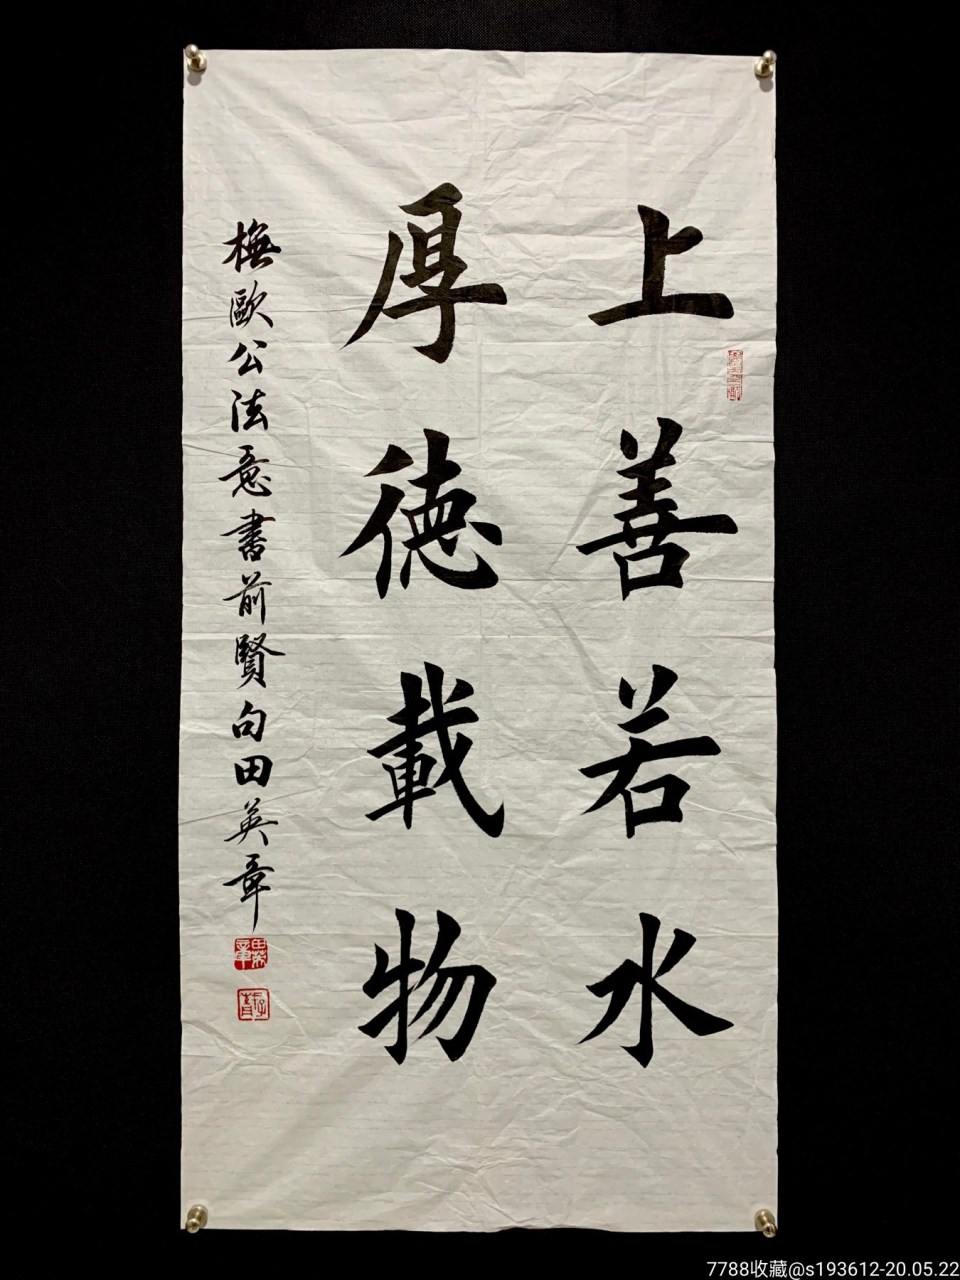 上善若水
厚德載物
橅歐公法意書前賢句田英章
田英章
7788收藏@s193612-20.05.22